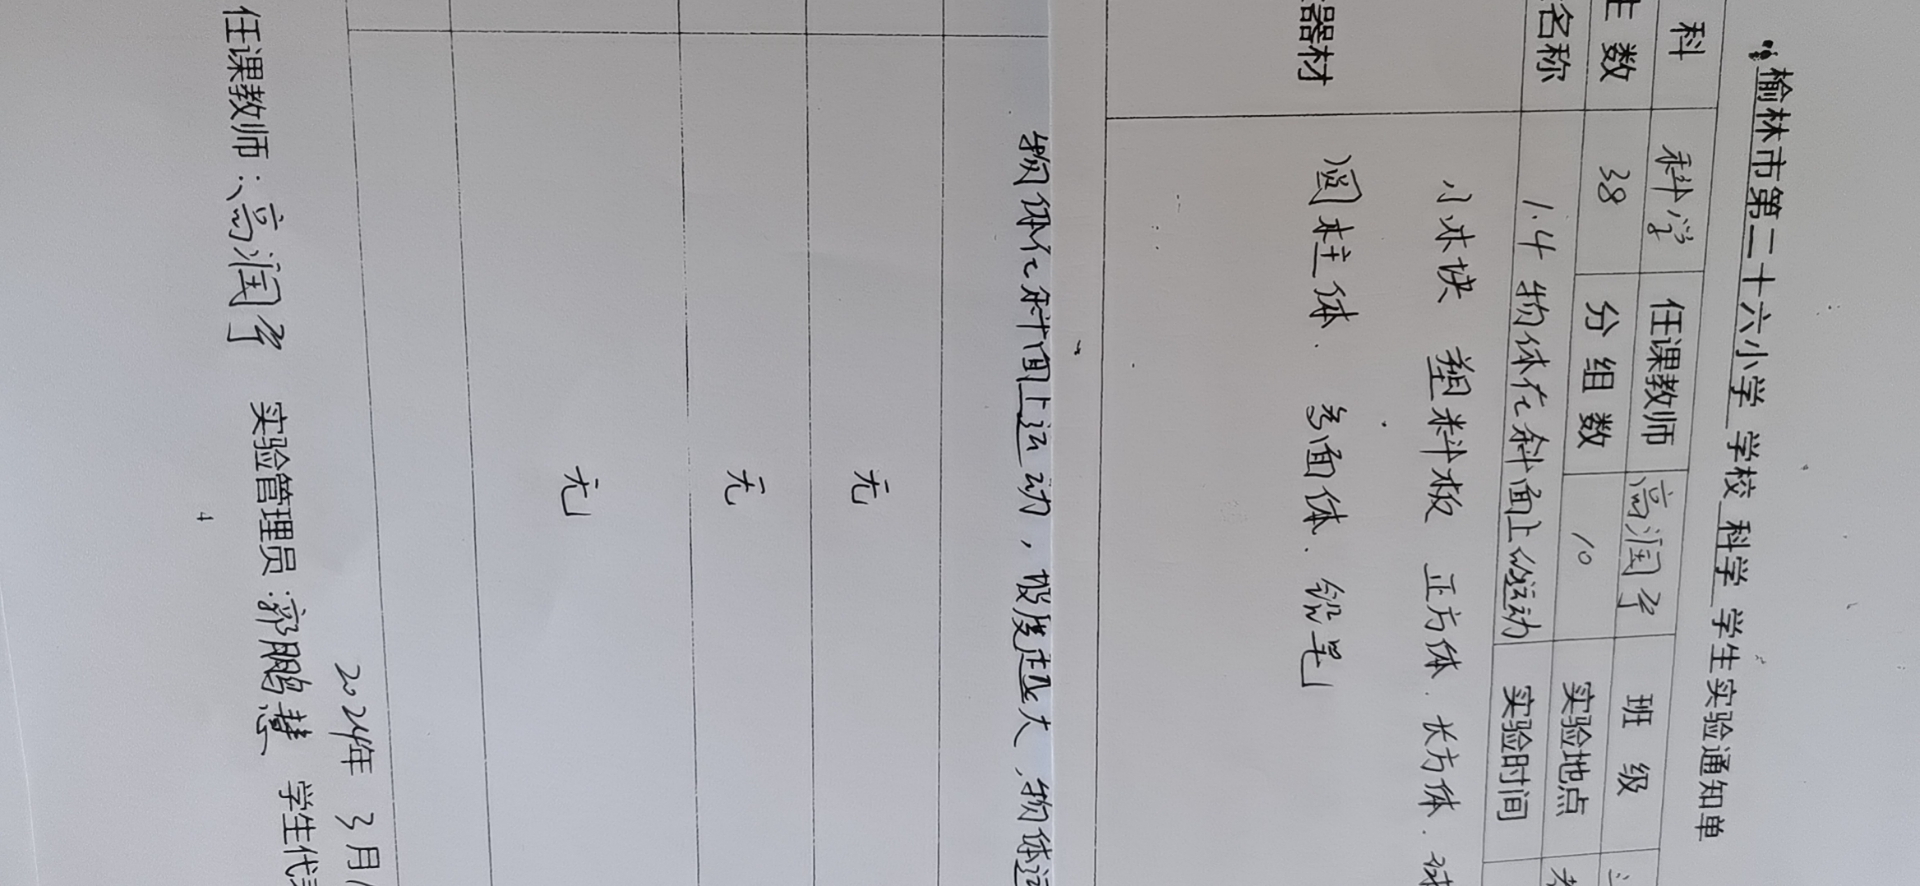 榆林市第二十六小学 学校 科学 学生实验通知单
科 科学 任课教师 高润予 班 级
数 38 分 组 数 10 实验地点
名称 1.4 物体在斜面上的运动 实验时间
器材 小木块 塑料板 正方体. 长方体. 球
圆柱体. 多面体. 铅笔
物体在斜面上运动，坡度越大，物体运
无
无
无
2024年 3月
任课教师：高润予 实验管理员：郭鹏慧 学生代